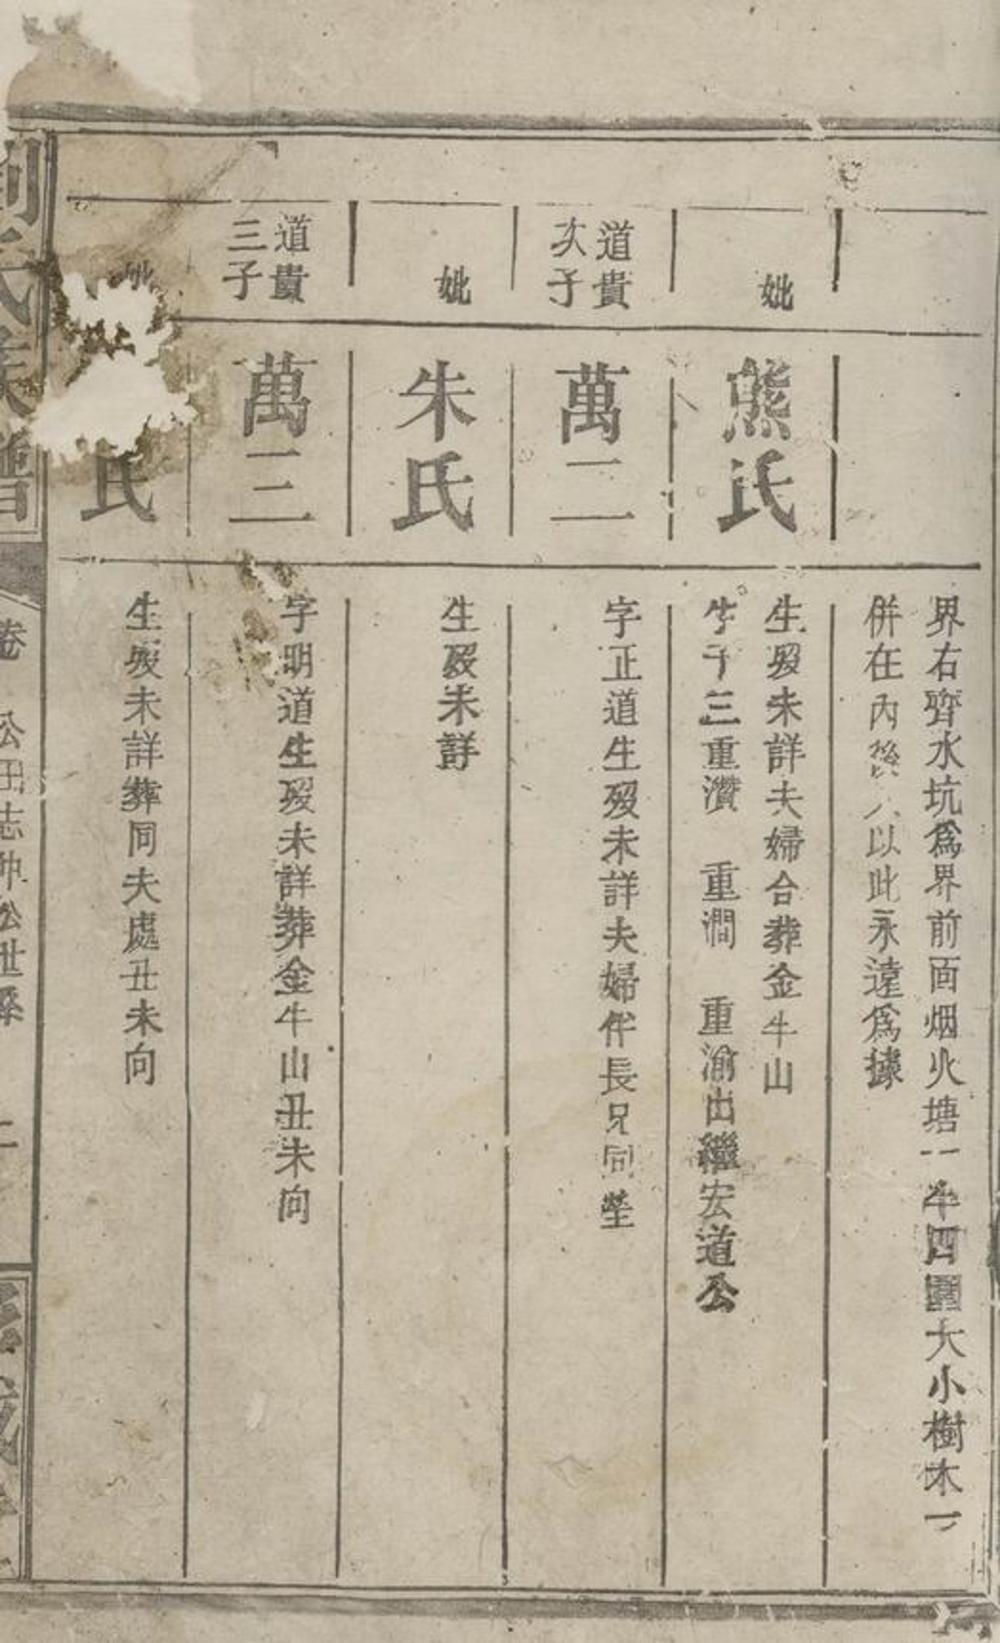 界右齊水坑爲界前面烟火塘一半四圍大小樹木一
併在內後人以此永遠爲據
妣
熊氏
生歿未詳夫婦合葬金牛山
生子三重瓚 重澗 重渝出繼宏道公
道貴
次子
萬二
字正道生歿未詳夫婦伴長兄同塋
妣
朱氏
生歿未詳
道貴
三子
萬三
字明道生歿未詳葬金牛山丑未向
妣
氏
生歿未詳葬同夫處丑未向
劉氏族譜
卷 公田志仲公世系